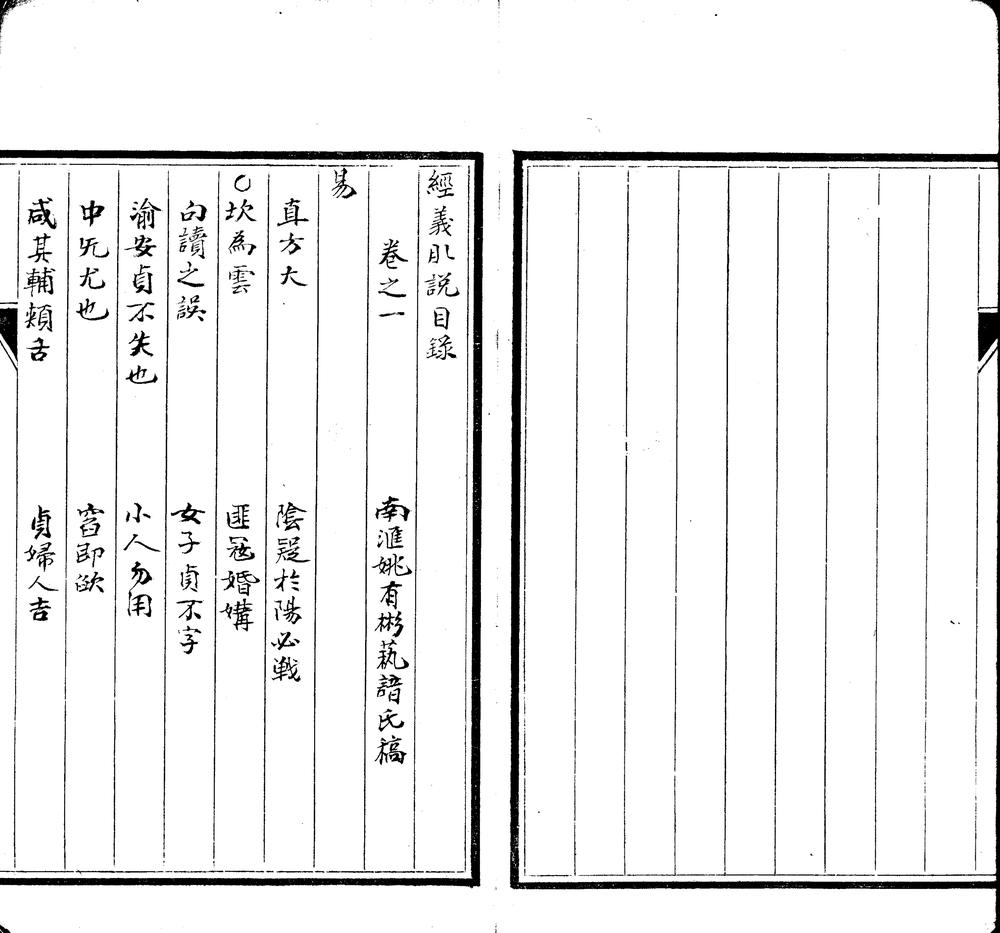 經義肊説目錄
卷之一 南滙姚有彬蓺諳氏稿
易
直方大 陰疑於陽必戰
○坎為雲 匪寇婚媾
句讀之誤 女子貞不字
渝安貞不失也 小人勿用
中旡尤也 窞即欿
咸其輔頰舌 貞婦人吉